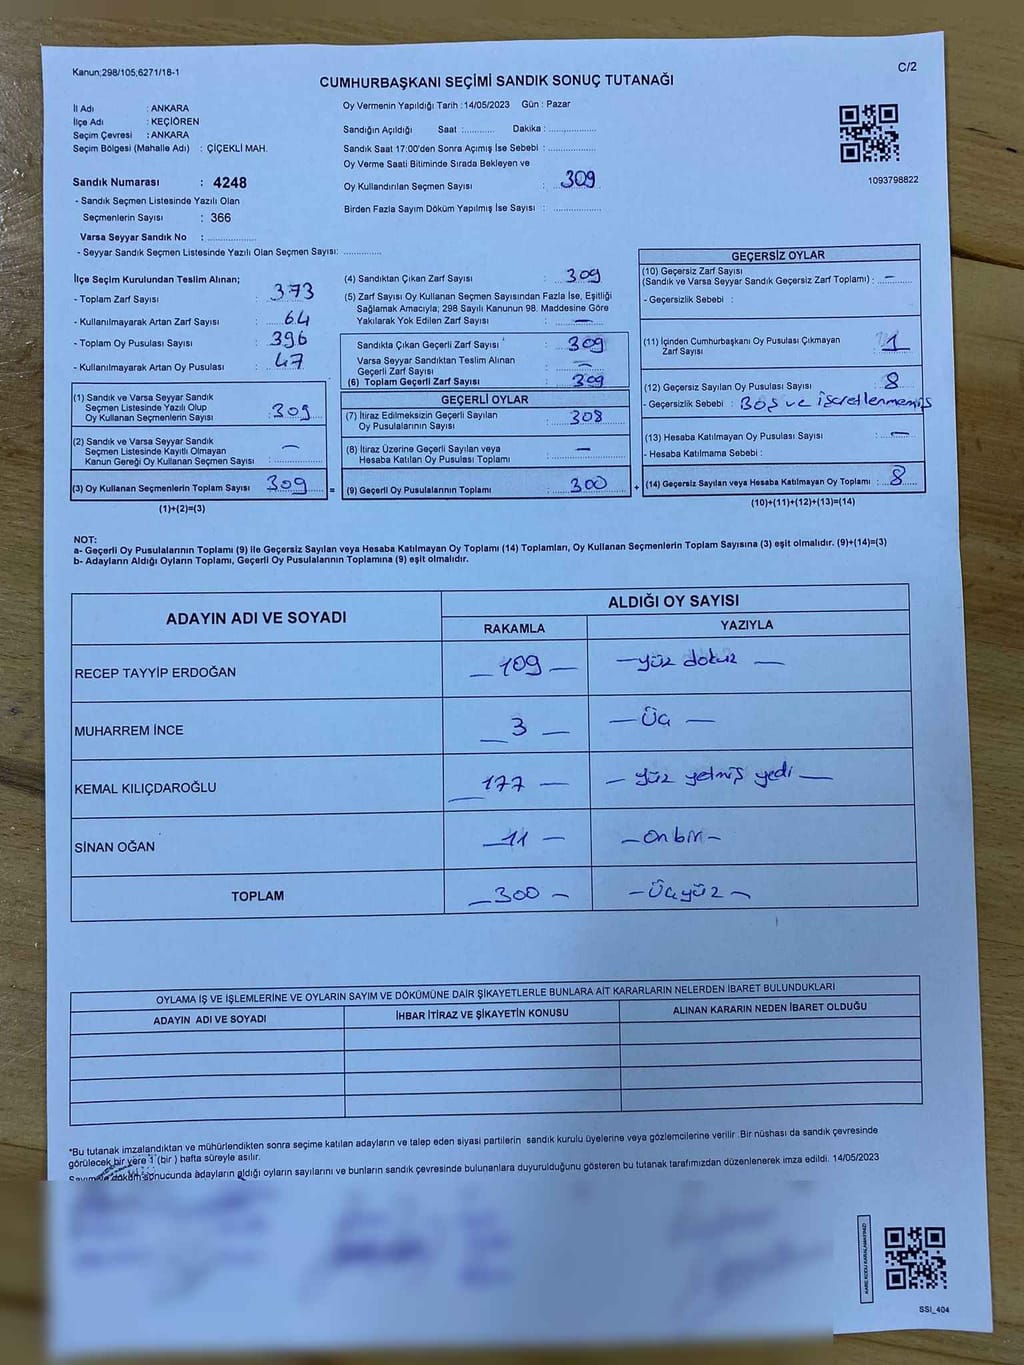 Kanun;298/105;6271/18-1
C/2
CUMHURBAŞKANI SEÇİMİ SANDIK SONUÇ TUTANAĞI
İl Adı : ANKARA
İlçe Adı : KEÇİÖREN
Seçim Çevresi : ANKARA
Seçim Bölgesi (Mahalle Adı) : ÇİÇEKLİ MAH.
Sandık Numarası : 4248
- Sandık Seçmen Listesinde Yazılı Olan
Seçmenlerin Sayısı : 366
Varsa Seyyar Sandık No : ................
- Seyyar Sandık Seçmen Listesinde Yazılı Olan Seçmen Sayısı: .............
Oy Vermenin Yapıldığı Tarih :14/05/2023 Gün : Pazar
Sandığın Açıldığı Saat :........... Dakika :................
Sandık Saat 17:00'den Sonra Açımış İse Sebebi :................
Oy Verme Saati Bitiminde Sırada Bekleyen ve
Oy Kullandırılan Seçmen Sayısı : 309
Birden Fazla Sayım Döküm Yapılmış İse Sayısı :................
1093798822
İlçe Seçim Kurulundan Teslim Alınan;
- Toplam Zarf Sayısı : 373
- Kullanılmayarak Artan Zarf Sayısı : 64
- Toplam Oy Pusulası Sayısı : 396
- Kullanılmayarak Artan Oy Pusulası : 47
(1) Sandık ve Varsa Seyyar Sandık
Seçmen Listesinde Yazılı Olup
Oy Kullanan Seçmenlerin Sayısı : 309
(2) Sandık ve Varsa Seyyar Sandık
Seçmen Listesinde Kayıtlı Olmayan
Kanun Gereği Oy Kullanan Seçmen Sayısı : —
(3) Oy Kullanan Seçmenlerin Toplam Sayısı : 309
(1)+(2)=(3)
=
(4) Sandıktan Çıkan Zarf Sayısı : 309
(5) Zarf Sayısı Oy Kullanan Seçmen Sayısından Fazla İse, Eşitliği
Sağlamak Amacıyla; 298 Sayılı Kanunun 98. Maddesine Göre
Yakılarak Yok Edilen Zarf Sayısı : —
Sandıkta Çıkan Geçerli Zarf Sayısı : 309
Varsa Seyyar Sandıktan Teslim Alınan
Geçerli Zarf Sayısı : —
(6) Toplam Geçerli Zarf Sayısı : 309
GEÇERLİ OYLAR
(7) İtiraz Edilmeksizin Geçerli Sayılan
Oy Pusulalarının Sayısı : 308
(8) İtiraz Üzerine Geçerli Sayılan veya
Hesaba Katılan Oy Pusulası Toplamı : —
(9) Geçerli Oy Pusulalarının Toplamı : 300
+
GEÇERSİZ OYLAR
(10) Geçersiz Zarf Sayısı
(Sandık ve Varsa Seyyar Sandık Geçersiz Zarf Toplamı) : —
- Geçersizlik Sebebi :
(11) İçinden Cumhurbaşkanı Oy Pusulası Çıkmayan
Zarf Sayısı : 1
(12) Geçersiz Sayılan Oy Pusulası Sayısı : 8
- Geçersizlik Sebebi : Boş ve işaretlenmemiş
(13) Hesaba Katılmayan Oy Pusulası Sayısı : —
- Hesaba Katılmama Sebebi :
(14) Geçersiz Sayılan veya Hesaba Katılmayan Oy Toplamı : 8
(10)+(11)+(12)+(13)=(14)
NOT:
a- Geçerli Oy Pusulalarının Toplamı (9) ile Geçersiz Sayılan veya Hesaba Katılmayan Oy Toplamı (14) Toplamları, Oy Kullanan Seçmenlerin Toplam Sayısına (3) eşit olmalıdır. (9)+(14)=(3)
b- Adayların Aldığı Oyların Toplamı, Geçerli Oy Pusulalarının Toplamına (9) eşit olmalıdır.
ADAYIN ADI VE SOYADI
ALDIĞI OY SAYISI
RAKAMLA YAZIYLA
RECEP TAYYİP ERDOĞAN — 109 — — yüz dokuz —
MUHARREM İNCE — 3 — — Üç —
KEMAL KILIÇDAROĞLU — 177 — — yüz yetmiş yedi —
SİNAN OĞAN — 11 — — on bir —
TOPLAM — 300 — — Üçyüz —
OYLAMA İŞ VE İŞLEMLERİNE VE OYLARIN SAYIM VE DÖKÜMÜNE DAİR ŞİKAYETLERLE BUNLARA AİT KARARLARIN NELERDEN İBARET BULUNDUKLARI
ADAYIN ADI VE SOYADI İHBAR İTİRAZ VE ŞİKAYETİN KONUSU ALINAN KARARIN NEDEN İBARET OLDUĞU
*Bu tutanak imzalandıktan ve mühürlendikten sonra seçime katılan adayların ve talep eden siyasi partilerin sandık kurulu üyelerine veya gözlemcilerine verilir. Bir nüshası da sandık çevresinde
görülecek bir yere 1 (bir ) hafta süreyle asılır.
Sayım ve döküm sonucunda adayların aldığı oyların sayılarını ve bunların sandık çevresinde bulunanlara duyurulduğunu gösteren bu tutanak tarafımızdan düzenlenerek imza edildi. 14/05/2023
SSI_404